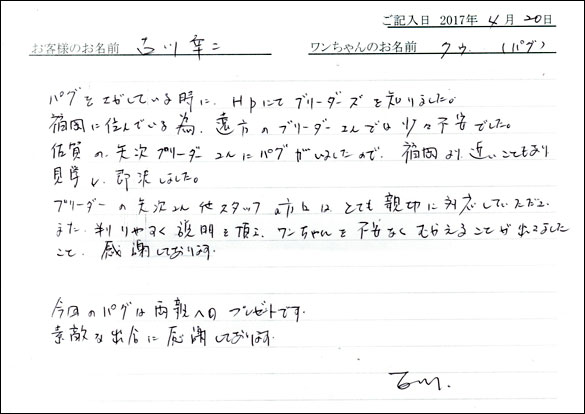 ご記入日 2017年 4月 20日
お客様のお名前 古川 幸二 ワンちゃんのお名前 クゥ (パグ)
パグをさがしている時に、Hpにてブリーダーズを知りました。
福岡に住んでいる為、遠方のブリーダーさんでは少々不安でした。
佐賀の矢次ブリーダーさんにパグがいましたので、福岡より近いこともあり
見学し、即決しました。
ブリーダーの矢次さん他スタッフの方には とても親切に対応していただき、
また、判りやすく説明を頂き、ワンちゃんを不安なくむかえることが出来ました
こと、感謝しております。
今回のパグは両親へのプレゼントです。
素敵な出会に感謝しております。
古川.